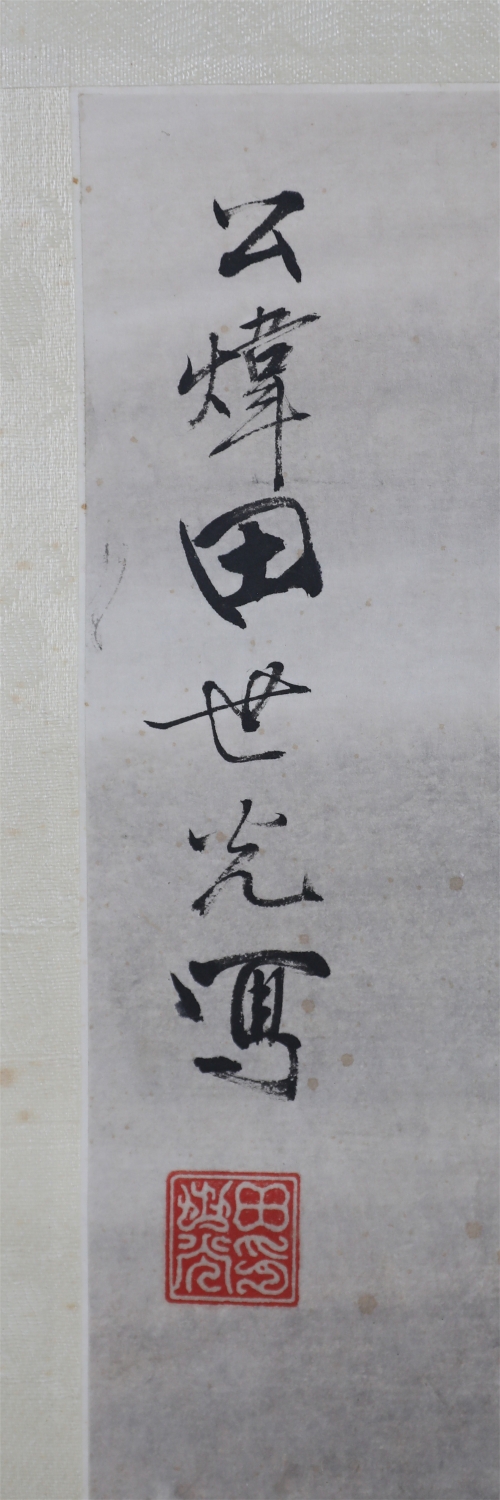 公煒田世光寫
田印
世光